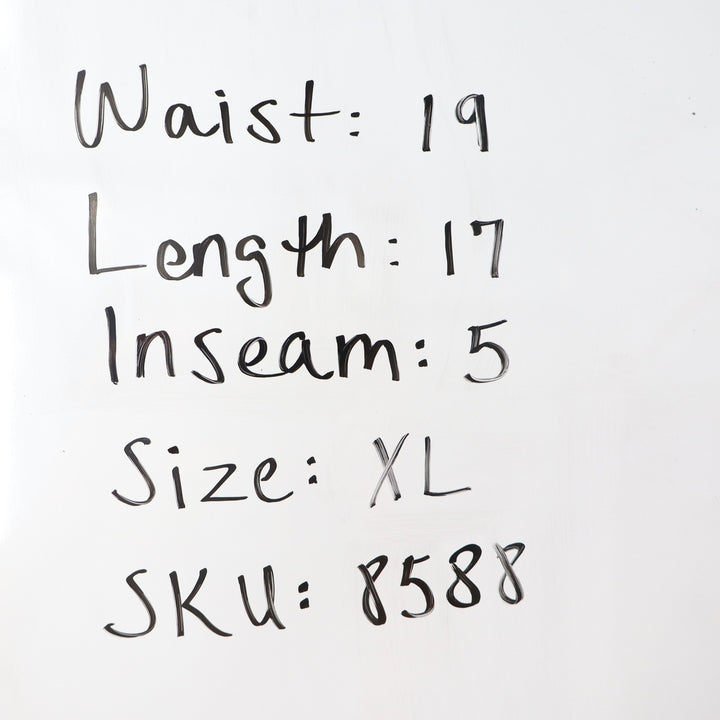 Waist: 19
Length: 17
Inseam: 5
Size: XL
SKU: 8588